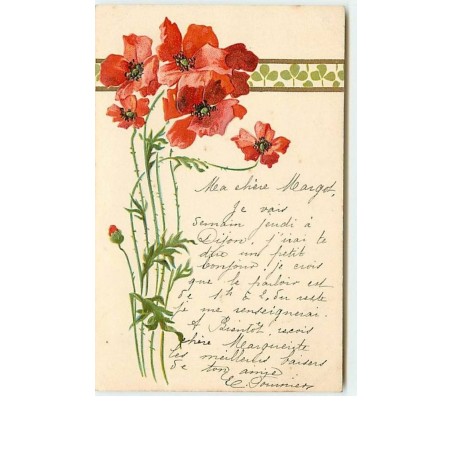 Ma chère Margot,
Je vais
demain jeudi à
Dijon. j'irai te
dire un petit
bonjour. je crois
que le parloir est
de 1h à 2. du reste
je me renseignerai.
A Bientôt. reçois
chère Marguerite
les meilleurs baisers
de ton amie